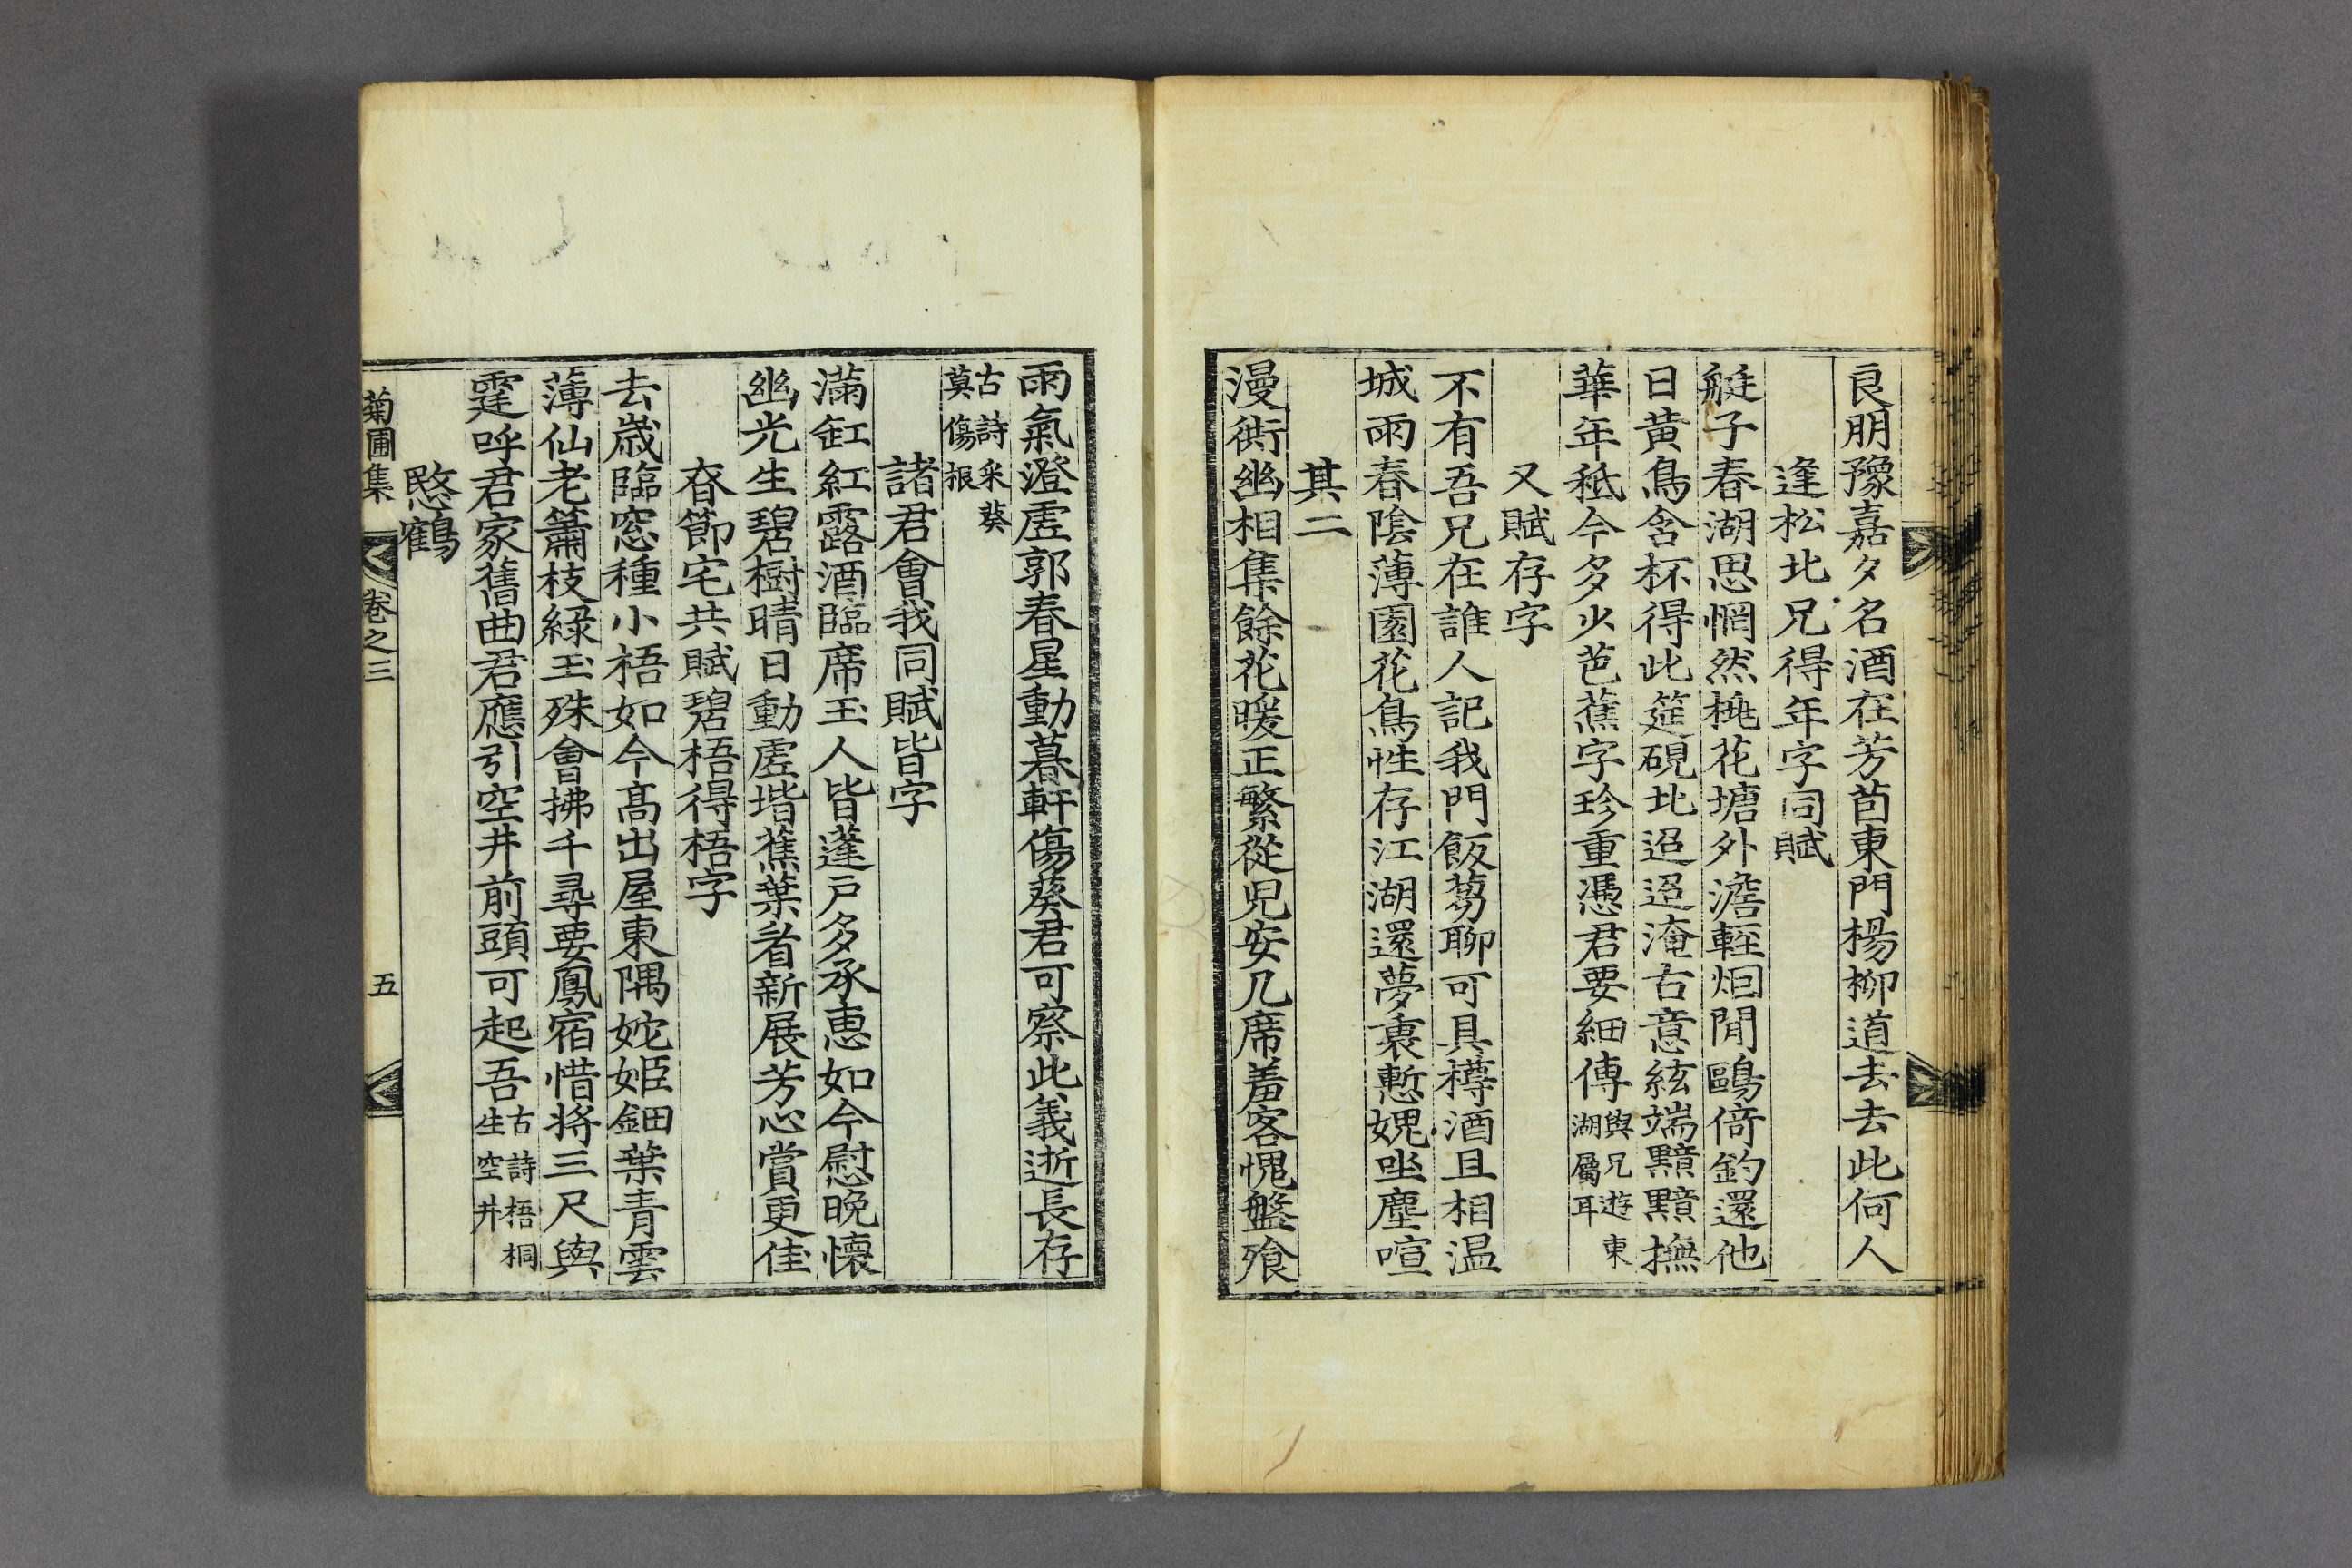 良朋豫嘉夕名酒在芳茵東門楊柳道去去此何人
逢松北兄得年字同賦
艇子春湖思惘然桃花塘外澹輕烟閒鷗倚釣還他
日黃鳥含杯得此筵硯北迢迢淹古意絃端黯黯撫
華年秪今多少芭蕉字珍重憑君要細傳與兄遊東湖屬耳
又賦存字
不有吾兄在誰人記我門飯蒭聊可具樽酒且相温
城雨春陰薄園花鳥性存江湖還夢裏慙媿坐塵喧
其二
漫衖幽相集餘花暖正繁從児安几席羞客愧盤飱
雨氣澄虛郭春星動暮軒傷葵君可察此義逝長存
古詩采葵莫傷根
諸君會我同賦皆字
滿缸紅露酒臨席玉人皆蓬戶多承惠如今慰晩懷
幽光生碧樹晴日動虛堦蕉葉看新展芳心賞更佳
旾節宅共賦碧梧得梧字
去歲臨窓種小梧如今高出屋東隅姹姬鈿葉青雲
薄仙老簫枝綠玉殊會拂千尋要鳳宿惜將三尺與
霆呼君家舊曲君應引空井前頭可起吾古詩梧桐生空井
愍鶴
菊圃集 卷之三 五